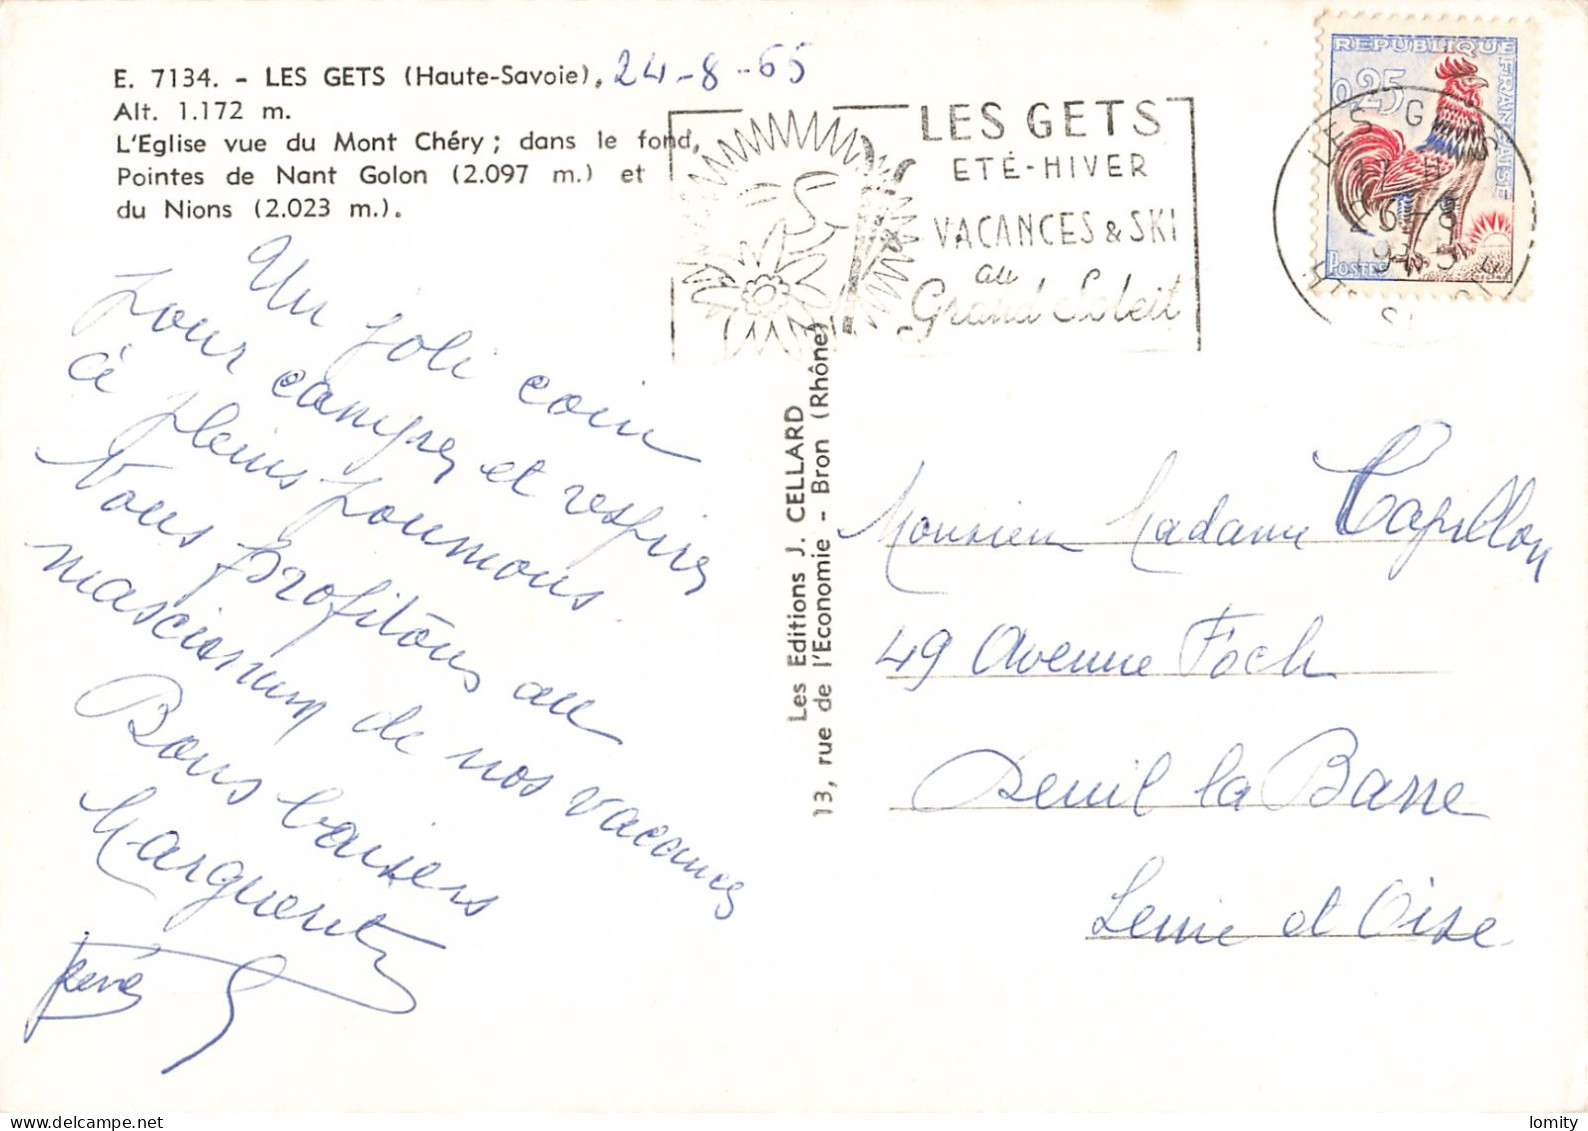 E. 7134. - LES GETS (Haute-Savoie), 24-8-65
Alt. 1.172 m.
L'Eglise vue du Mont Chéry ; dans le fond,
Pointes de Nant Golon (2.097 m.) et
du Nions (2.023 m.).
Un joli coin
pour camper et respirer
à pleins poumons
Nous profitons au
mascimum de nos vacances
Bons baisers
Marguerite
René
Les Editions J. CELLARD
13, rue de l'Economie - Bron (Rhône)
LES GETS
ETÉ-HIVER
VACANCES & SKI
au
Grand Soleil
REPUBLIQUE FRANÇAISE
0,25
POSTES
LES G
26-8
Monsieur Madame Capillon
49 Avenue Foch
Deuil la Barre
Seine et Oise
lomity